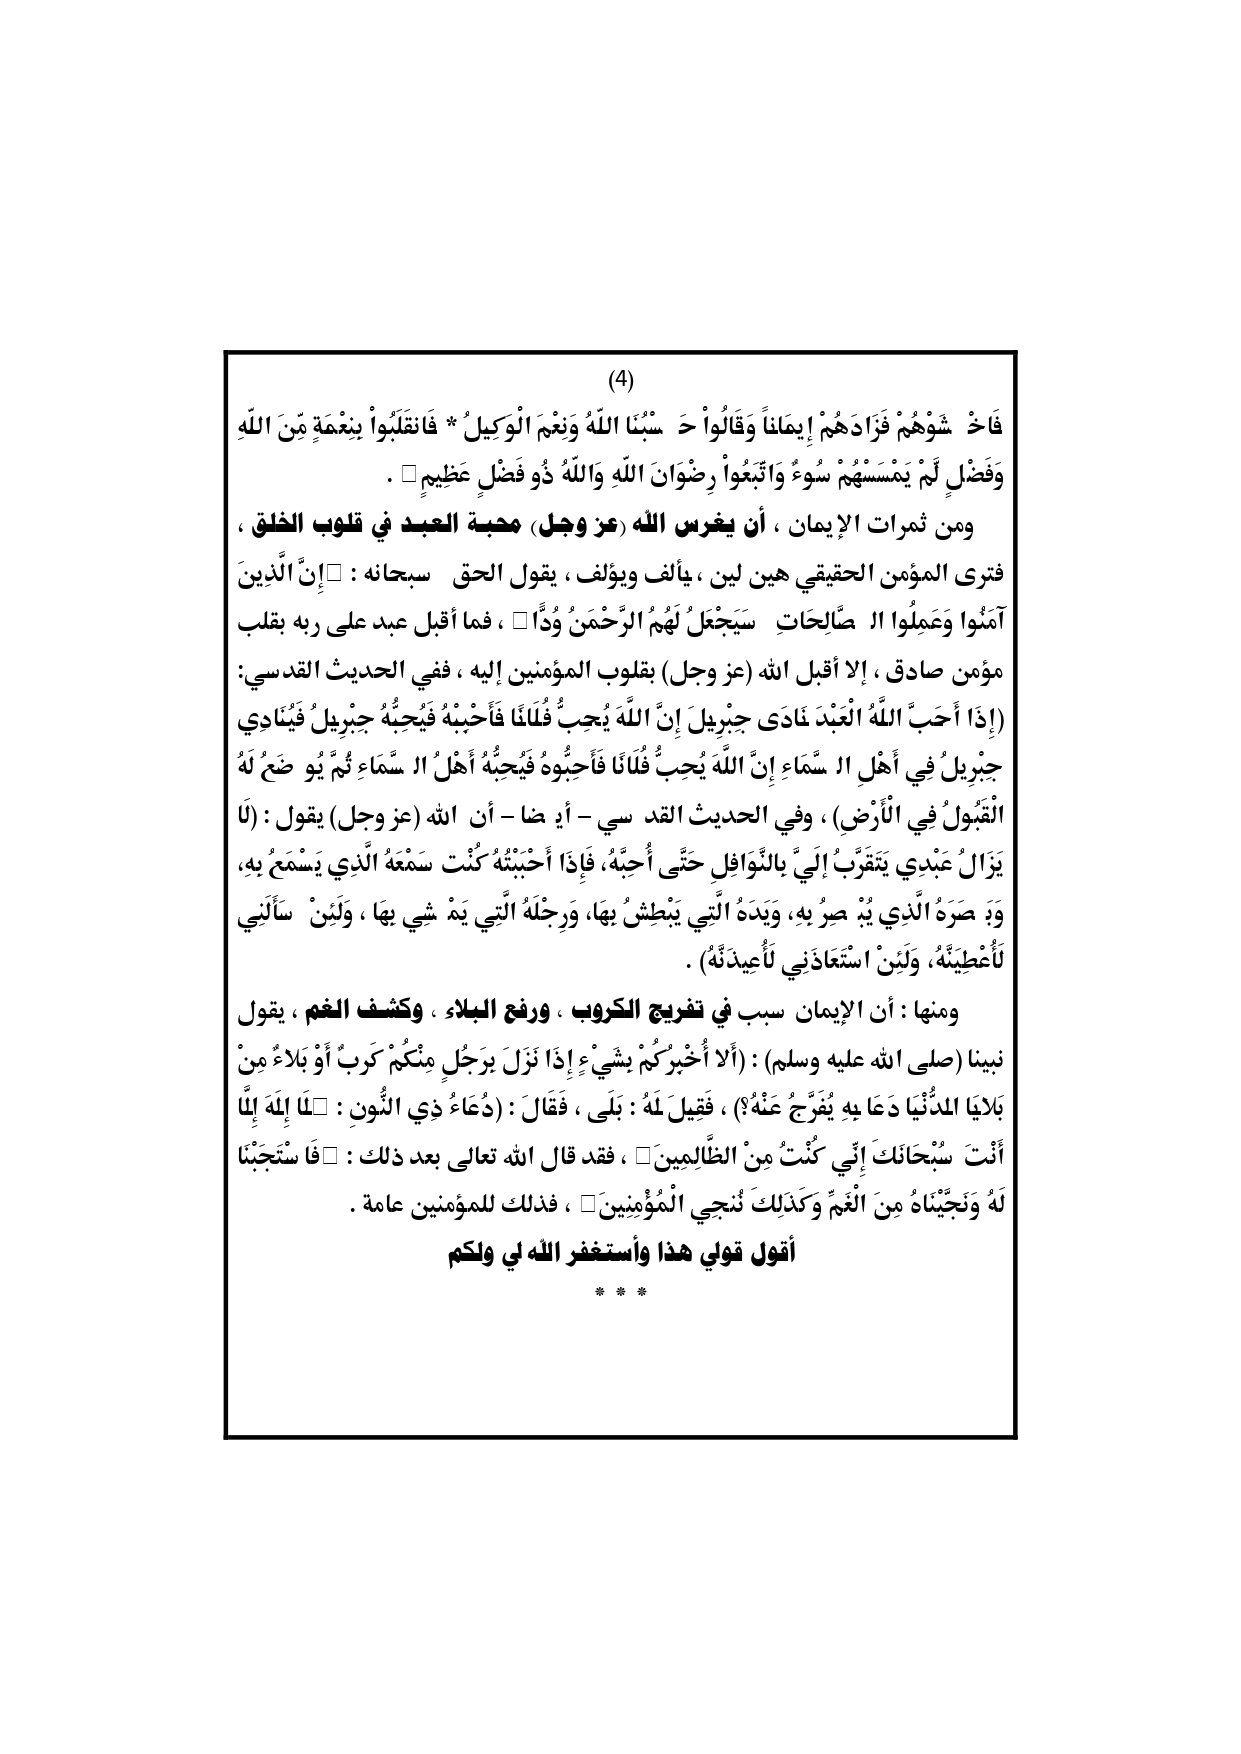 (4)
فَاخْشَوْهُمْ فَزَادَهُمْ إِيمَاناً وَقَالُواْ حَسْبُنَا اللّهُ وَنِعْمَ الْوَكِيلُ * فَانقَلَبُواْ بِنِعْمَةٍ مِّنَ اللّهِ
وَفَضْلٍ لَّمْ يَمْسَسْهُمْ سُوءٌ وَاتَّبَعُواْ رِضْوَانَ اللّهِ وَاللّهُ ذُو فَضْلٍ عَظِيمٍ .
ومن ثمرات الإيمان ، أن يغرس الله (عز وجل) محبة العبد في قلوب الخلق ،
فترى المؤمن الحقيقي هين لين ، يألف ويؤلف ، يقول الحق سبحانه : إِنَّ الَّذِينَ
آمَنُوا وَعَمِلُوا الصَّالِحَاتِ سَيَجْعَلُ لَهُمُ الرَّحْمَنُ وُدًّا ، فما أقبل عبد على ربه بقلب
مؤمن صادق ، إلا أقبل الله (عز وجل) بقلوب المؤمنين إليه ، ففي الحديث القدسي:
(إِذَا أَحَبَّ اللَّهُ الْعَبْدَ نَادَى جِبْرِيلَ إِنَّ اللَّهَ يُحِبُّ فُلَانًا فَأَحْبِبْهُ فَيُحِبُّهُ جِبْرِيلُ فَيُنَادِي
جِبْرِيلُ فِي أَهْلِ السَّمَاءِ إِنَّ اللَّهَ يُحِبُّ فُلَانًا فَأَحِبُّوهُ فَيُحِبُّهُ أَهْلُ السَّمَاءِ ثُمَّ يُوضَعُ لَهُ
الْقَبُولُ فِي الْأَرْضِ) ، وفي الحديث القدسي – أيضا – أن الله (عز وجل) يقول : (لَا
يَزَالُ عَبْدِي يَتَقَرَّبُ إِلَيَّ بِالنَّوَافِلِ حَتَّى أُحِبَّهُ، فَإِذَا أَحْبَبْتُهُ كُنْت سَمْعَهُ الَّذِي يَسْمَعُ بِهِ،
وَبَصَرَهُ الَّذِي يُبْصِرُ بِهِ، وَيَدَهُ الَّتِي يَبْطِشُ بِهَا، وَرِجْلَهُ الَّتِي يَمْشِي بِهَا ، وَلَئِنْ سَأَلَنِي
لَأُعْطِيَنَّهُ، وَلَئِنْ اسْتَعَاذَنِي لَأُعِيذَنَّهُ) .
ومنها : أن الإيمان سبب في تفريج الكروب ، ورفع البلاء ، وكشف الغم ، يقول
نبينا (صلى الله عليه وسلم) : (أَلا أُخْبِرُكُمْ بِشَيْءٍ إِذَا نَزَلَ بِرَجُلٍ مِنْكُمْ كَربٌ أَوْ بَلاءٌ مِنْ
بَلايَا الدُّنْيَا دَعَا بِهِ يُفَرَّجُ عَنْهُ؟) ، فَقِيلَ لَهُ : بَلَى ، فَقَالَ : (دُعَاءُ ذِي النُّونِ : لَا إِلَهَ إِلَّا
أَنْتَ سُبْحَانَكَ إِنِّي كُنْتُ مِنْ الظَّالِمِينَ ، فقد قال الله تعالى بعد ذلك : فَاسْتَجَبْنَا
لَهُ وَنَجَّيْنَاهُ مِنَ الْغَمِّ وَكَذَلِكَ نُنجِي الْمُؤْمِنِينَ ، فذلك للمؤمنين عامة .
أقول قولي هذا وأستغفر الله لي ولكم
* * *